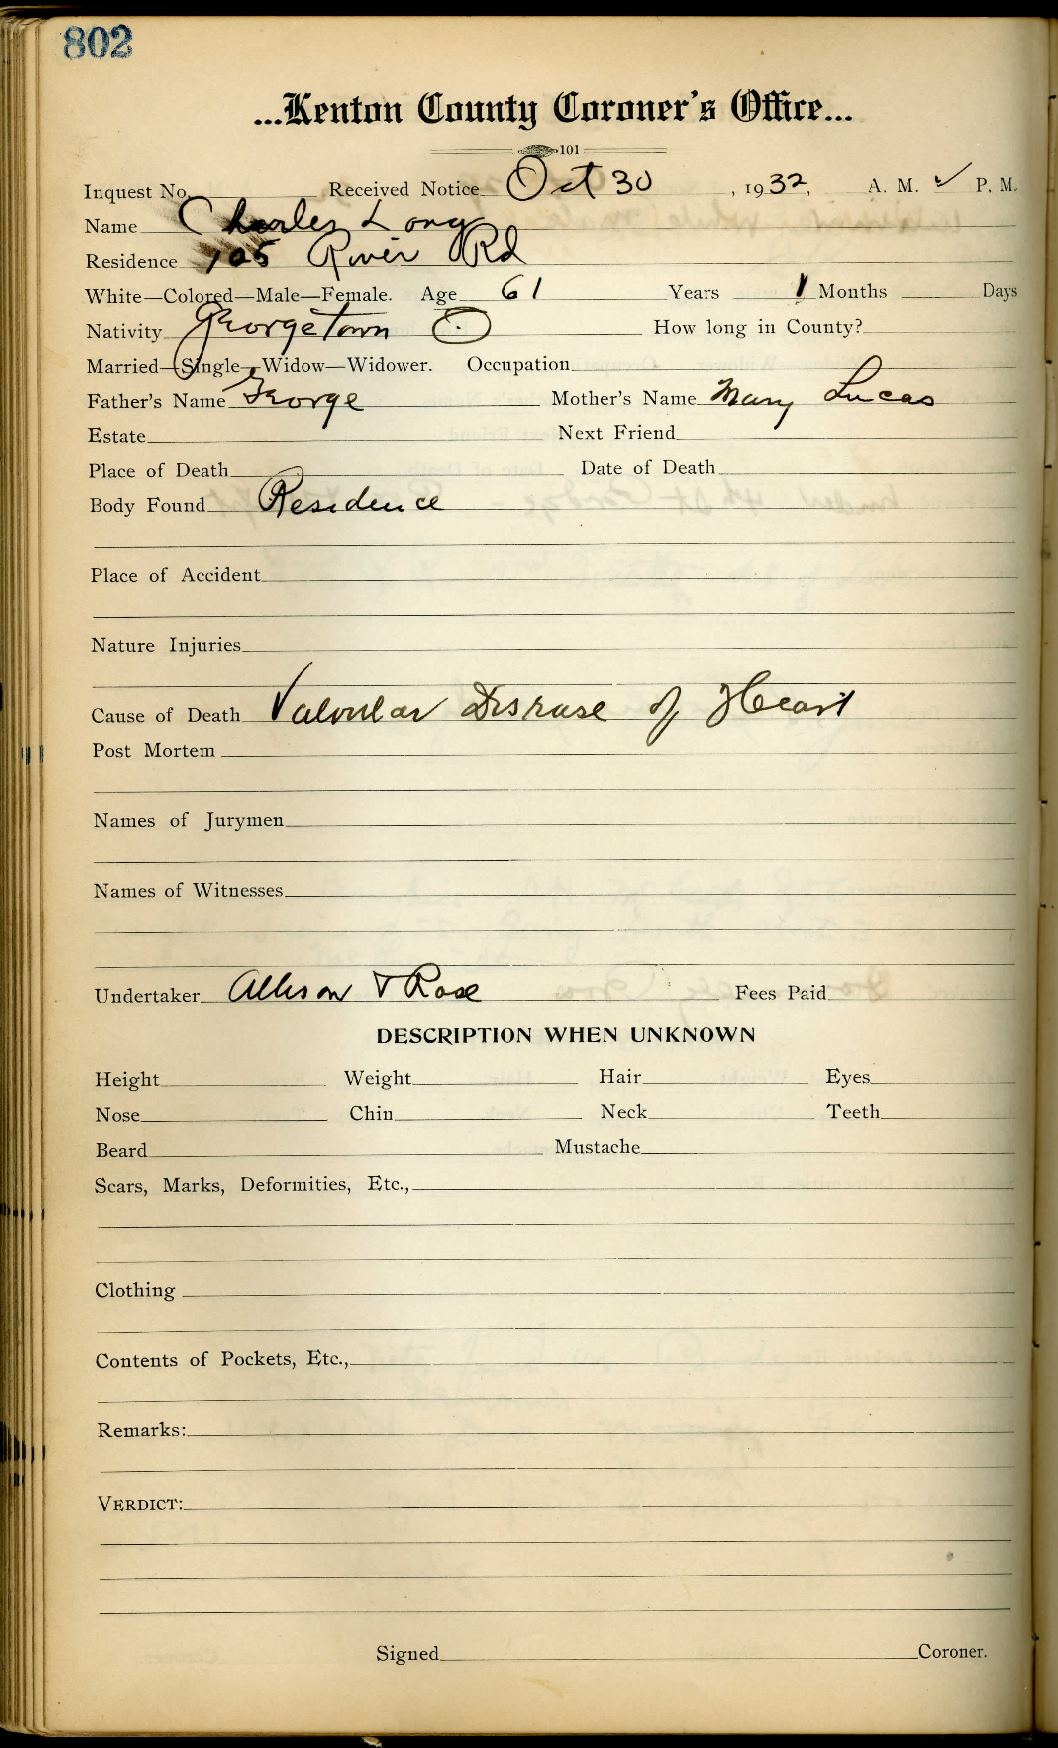 802
...Kenton County Coroner's Office...
101
Inquest No. Received Notice Oct 30, 1932, A. M. ✓ P. M.
Name Charles Long
Residence 105 River Rd
White—Colored—Male—Female. Age 61 Years 1 Months Days
Nativity Georgetown O How long in County?
Married—Single—Widow—Widower. Occupation
Father's Name George Mother's Name Mary Lucas
Estate Next Friend
Place of Death Date of Death
Body Found Residence
Place of Accident
Nature Injuries
Cause of Death Valvular Disease of Heart
Post Mortem
Names of Jurymen
Names of Witnesses
Undertaker Allison & Rose Fees Paid
DESCRIPTION WHEN UNKNOWN
Height Weight Hair Eyes
Nose Chin Neck Teeth
Beard Mustache
Scars, Marks, Deformities, Etc.,
Clothing
Contents of Pockets, Etc.,
Remarks:
VERDICT:
Signed Coroner.